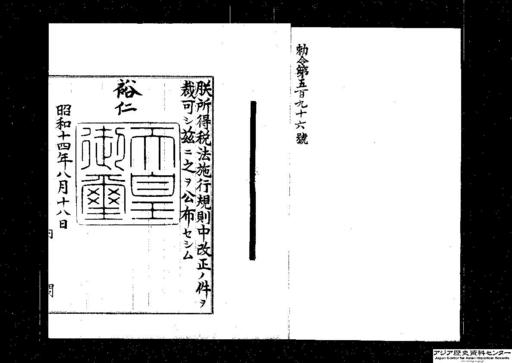 勅令第五百九十六號
朕所得税法施行規則中改正ノ件ヲ
裁可シ玆ニ之ヲ公布セシム
裕仁
天皇御璽
昭和十四年八月十八日
内閣
アジア歴史資料センター
Japan Center for Asian Historical Records